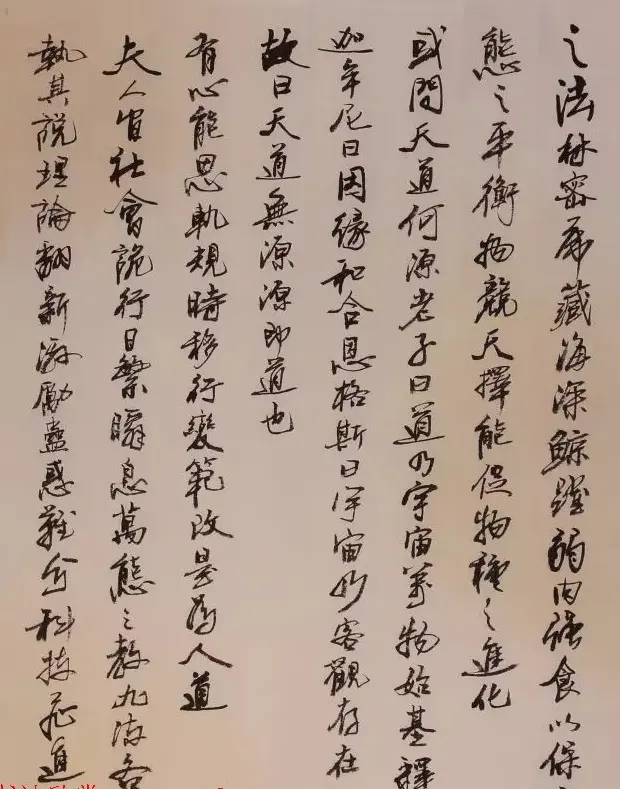 之法林密虎藏海深鲸蹚弱肉强食以保
態之平衡物競天擇能促物種之進化
或問天道何源老子曰道乃宇宙萬物始基釋
迦牟尼曰因緣和合恩格斯曰宇宙乃客觀存在
故曰天道無源源即道也
有心能思軌規時移行變範改是為人道
夫人皆社會詭行日繁瞬息萬態之教九流各
執其說理論翻新激勵蠱惑難分科技茲進